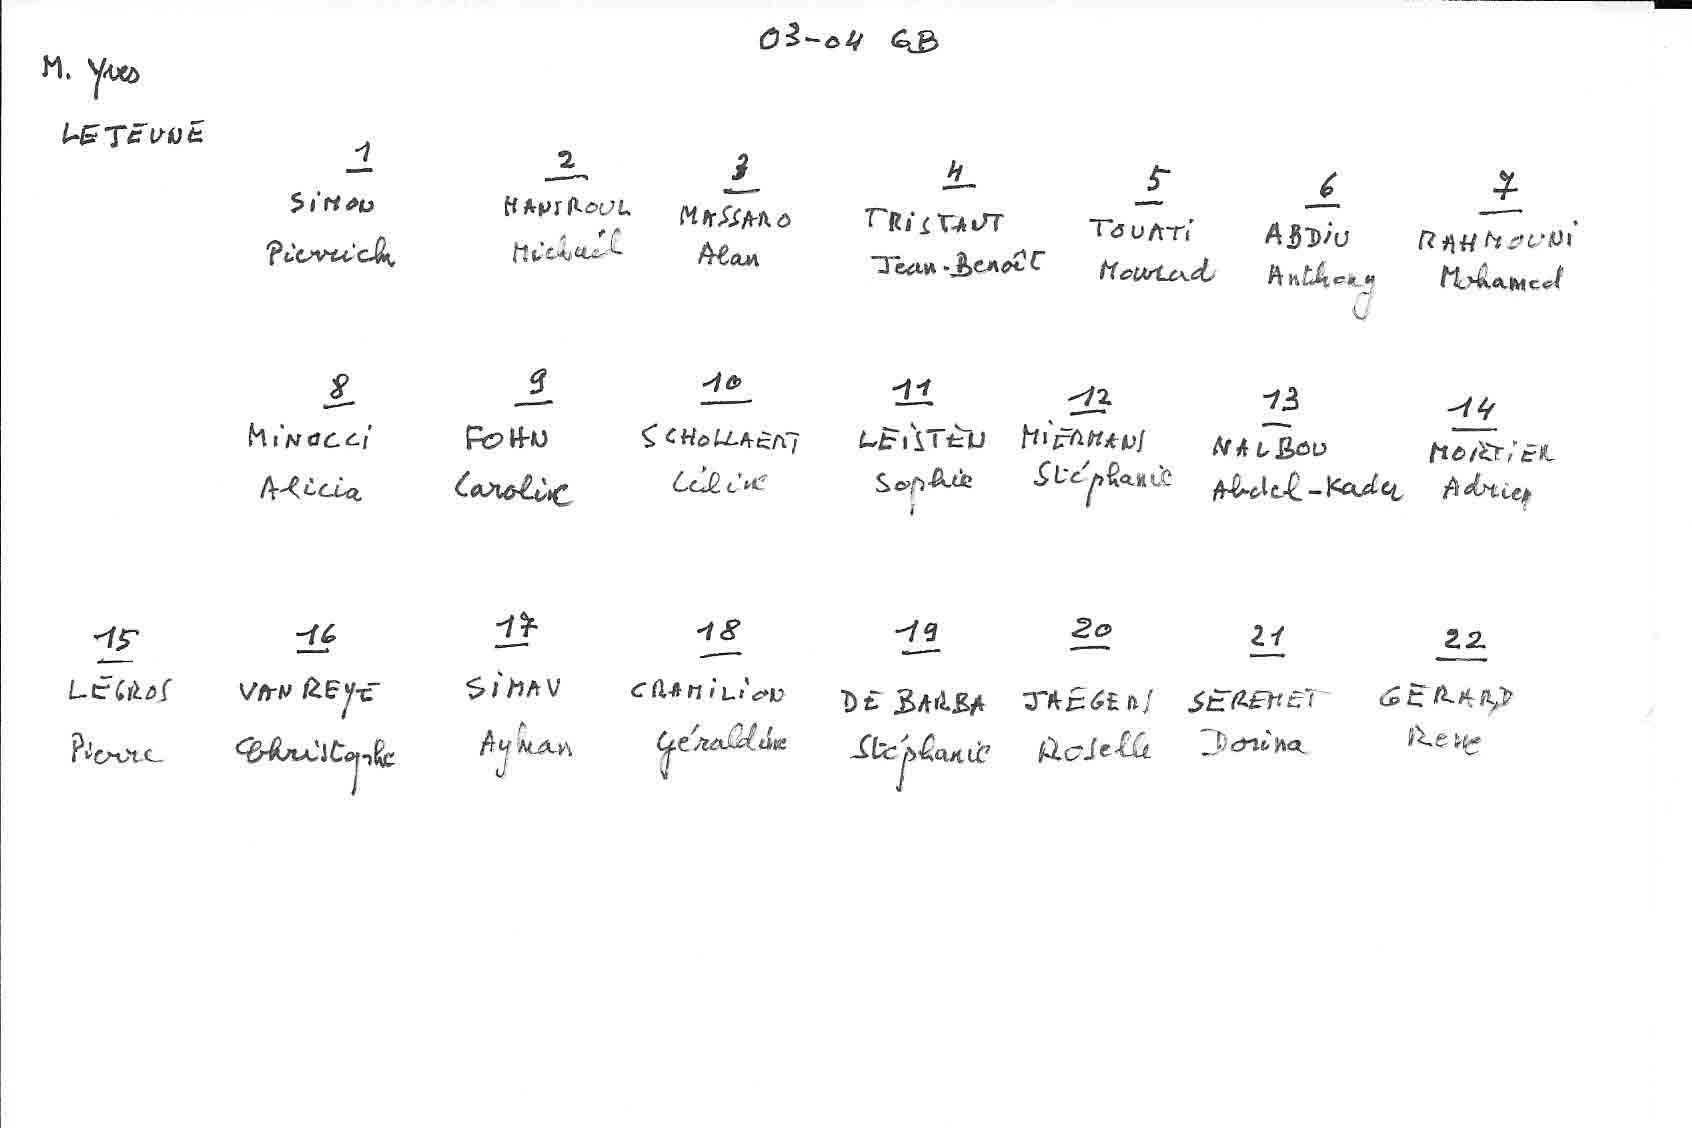 03-04 6B
M. Yves
LEJEUNE
1 2 3 4 5 6 7
SIMON HANSROUL MASSARO TRISTANT TOUATI ABDIU RAHMOUNI
Pierrick Michaël Alan Jean-Benoît Mourad Anthony Mohamed
8 9 10 11 12 13 14
MINACCI FOHN SCHOLLAERT LEISTEN MIERMANS NALBOU MORTIER
Alicia Caroline Céline Sophie Stéphanie Abdel-Kader Adrien
15 16 17 18 19 20 21 22
LEGROS VAN REYE SIMAV CRAMILION DE BARBA JAEGERS SEREMET GERARD
Pierre Christophe Ayhan Géraldine Stéphanie Roselle Dorina Rene